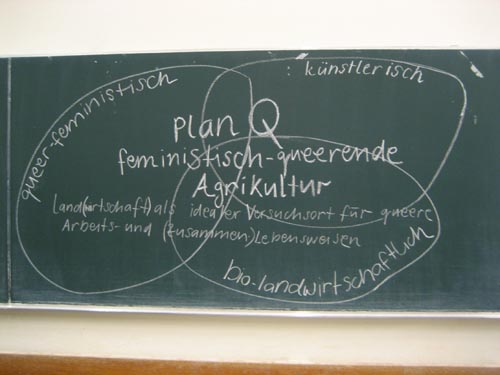 : künstlerisch
queer-feministisch
plan Q
feministisch-queerende
Agrikultur
Land(wirtschaft) als idealer Versuchsort für queere
Arbeits- und (zusammen)Lebensweisen
bio-landwirtschaftlich